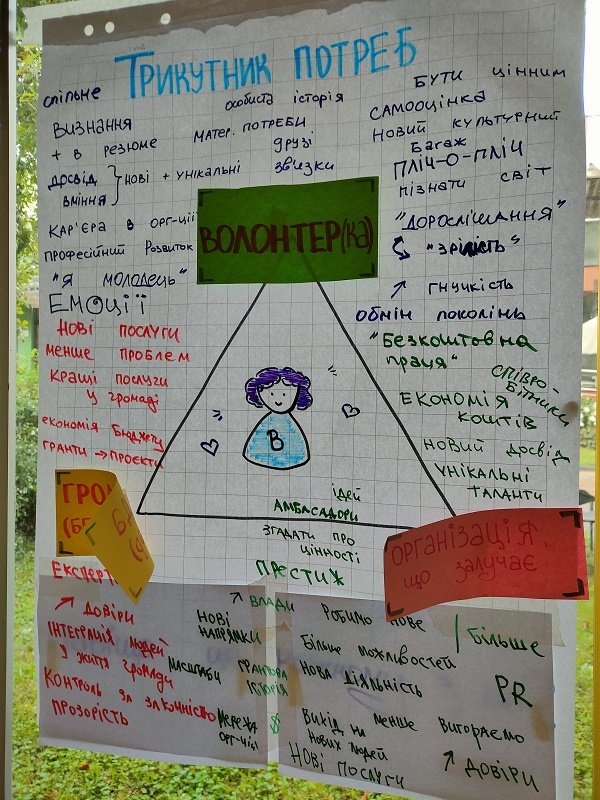 Трикутник потреб
спільне
Визнання
+ в резюме
досвід
вміння
нові + унікальні звязки
особиста історія
матер. потреби
друзі
кар'єра в орг-ції
професійний розвиток
"Я молодець"
Емоції
бути цінним
самооцінка
новий культурний
багаж
пліч-о-пліч
пізнати світ
"дорослішання"
"зрілість"
↗ гнучкість
обмін поколінь
Волонтер(ка)
В
Нові послуги
менше проблем
кращі послуги
у громаді
економія бюджету
гранти → проєкти
"Безкоштовна
праця"
співро-
бітники
економія
коштів
новий досвід
унікальні
таланти
ідей
амбасадори
згадати про
цінності
престиж
організація,
що залучає
↗ довіри
інтеграція людей
у життя громади
контроль за законністю
прозорість
↗ влади
нові
напрямки
масштаби
грантова
історія
мережа
орг-ції
$
робимо нове
більше можливостей
нова діяльність
/ більше
PR
вихід на
нових людей
менше вигораємо
нові послуги
↗ довіри